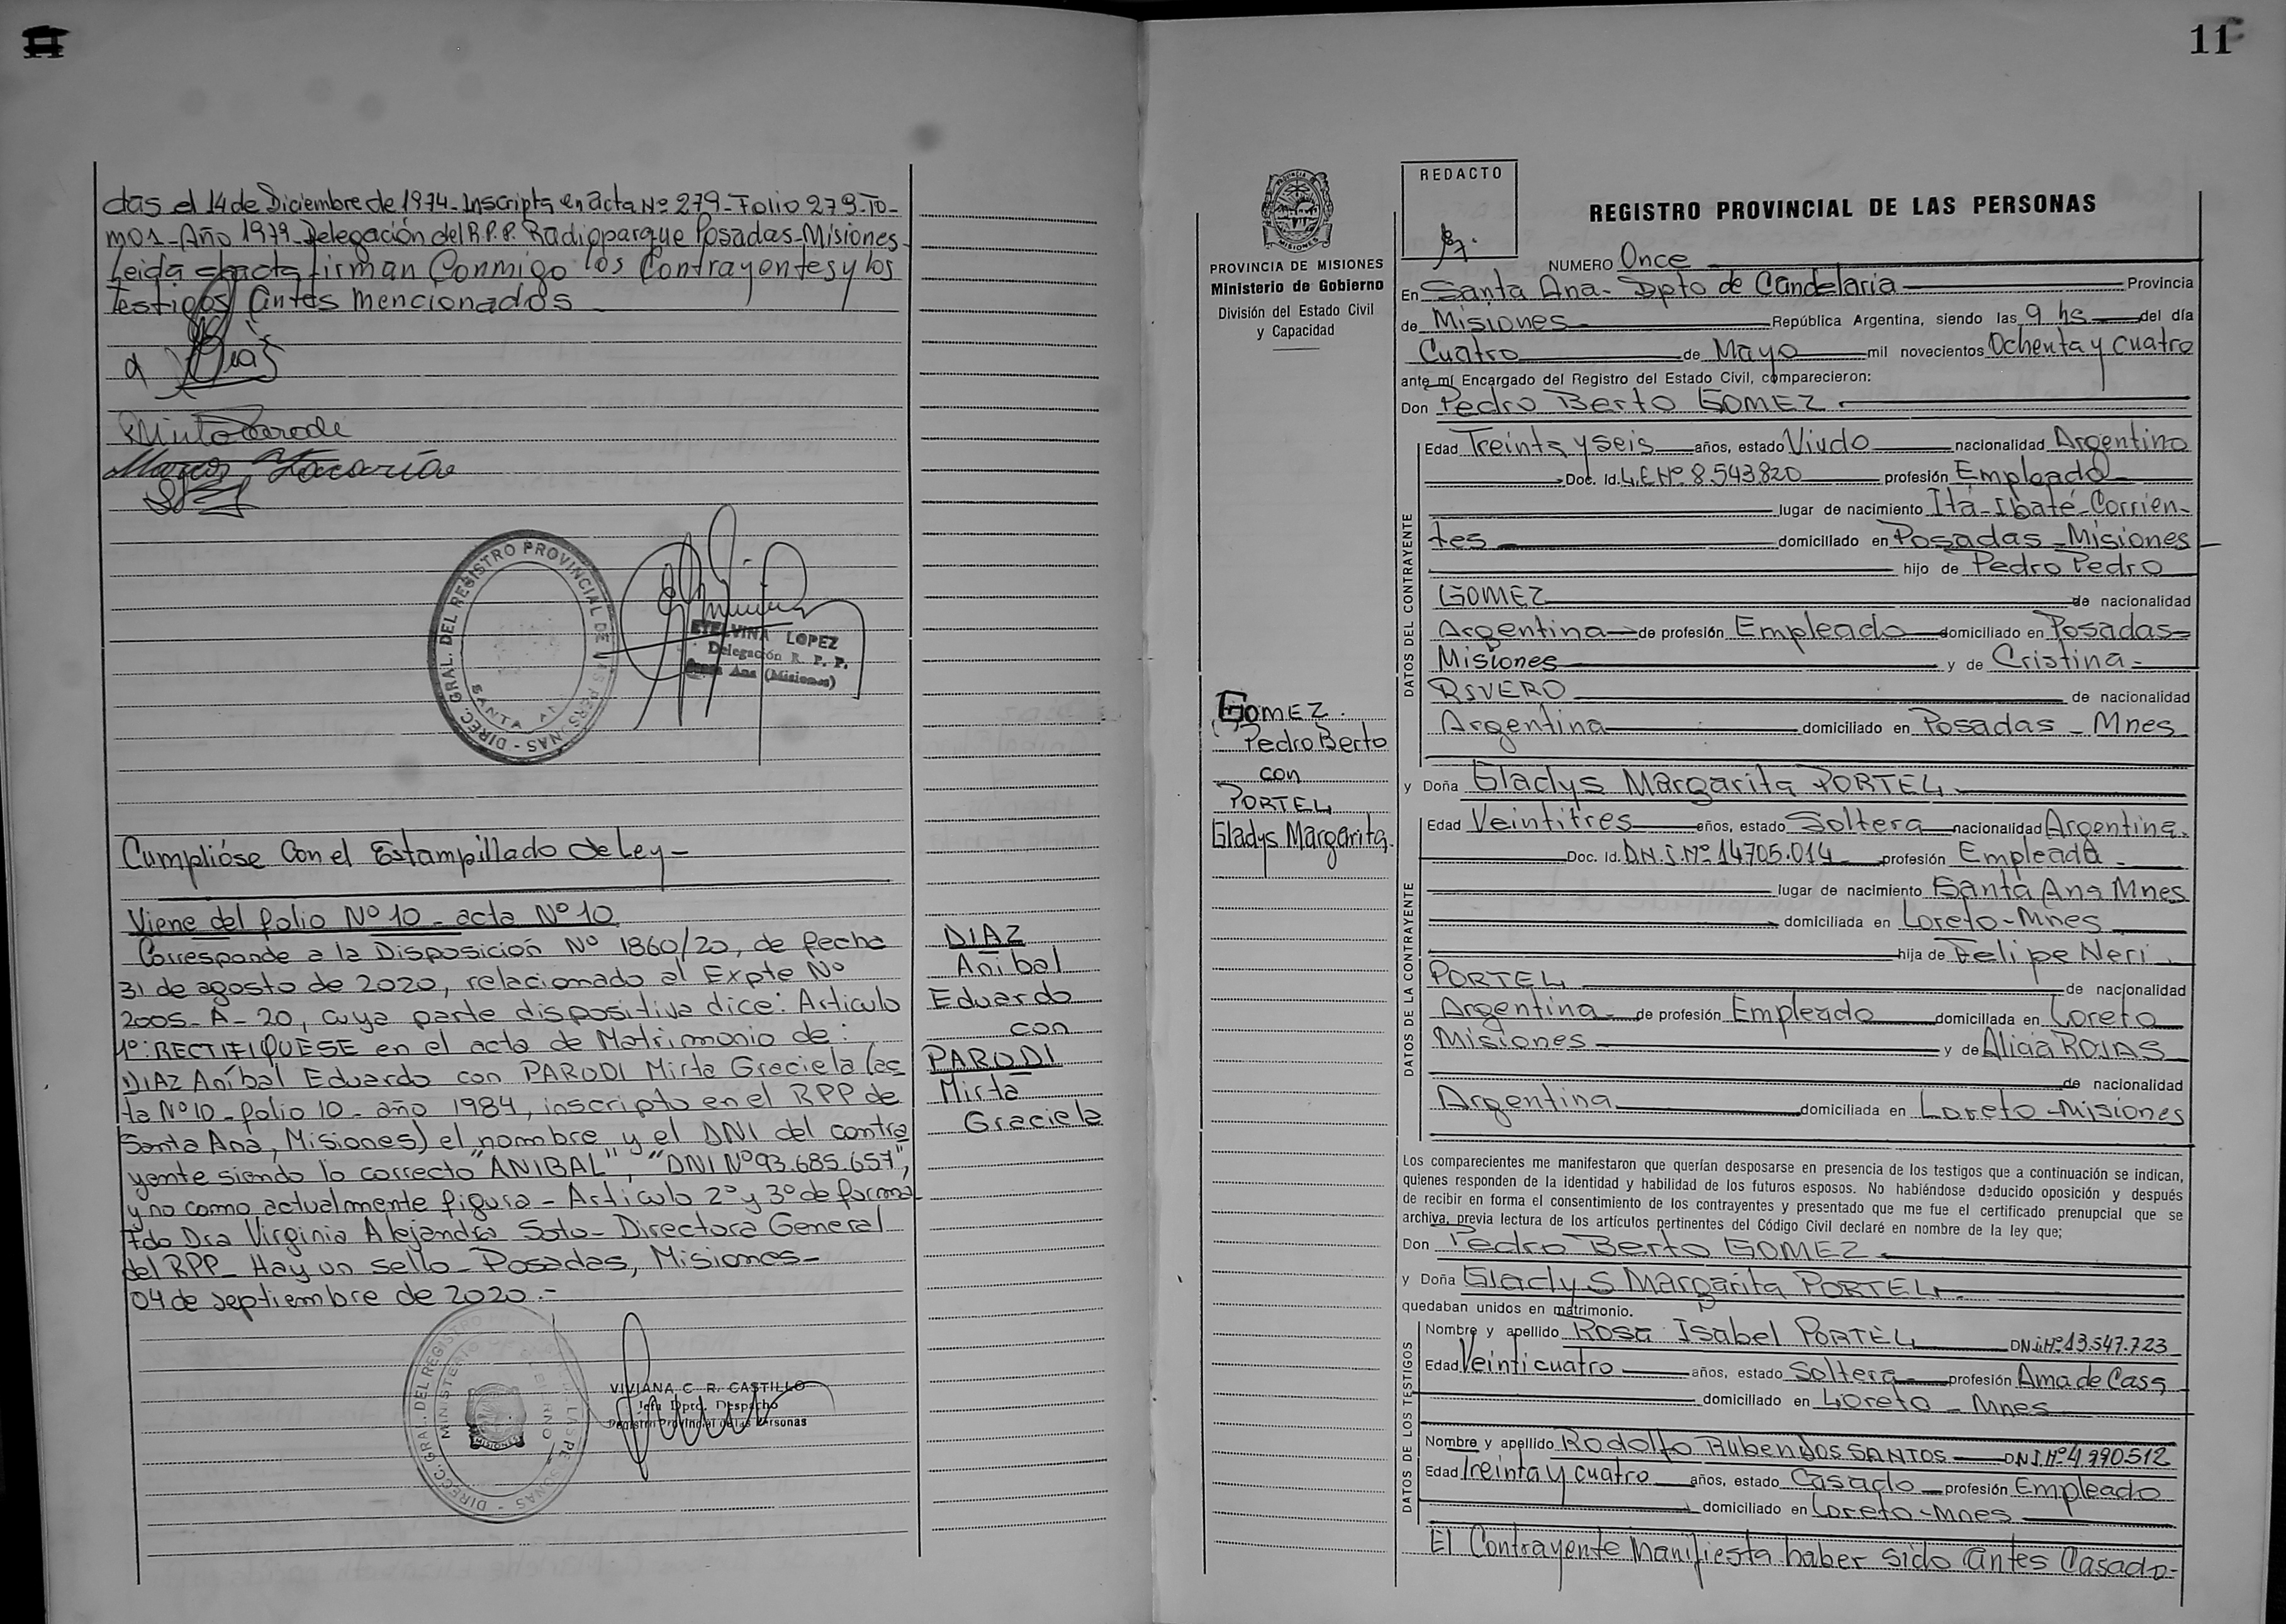 11
das el 14 de Diciembre de 1974 - Inscripta en acta Nº 279 - Folio 279 - To-
mo 1 - Año 1979 - Delegación del R.P.P. Radioparque Posadas - Misiones -
Leida el acta firman Conmigo los Contrayentes y los
Testigos Antes mencionados
DIREC. GRAL. DEL REGISTRO PROVINCIAL DE LAS PERSONAS -
SANTA ANA
ETELVINA LOPEZ
Delegación R. P. P.
Santa Ana (Misiones)
Cumplióse Con el Estampillado de Ley -
Viene del folio Nº 10 - acta Nº 10
Corresponde a la Disposición Nº 1860/20, de fecha
31 de agosto de 2020, relacionado al Expte Nº
2005 - A - 20, cuya parte dispositiva dice: Articulo
1º: RECTIFIQUESE en el acta de Matrimonio de:
DIAZ Aníbal Eduardo con PARODI Mirta Graciela (ac
ta Nº 10 - folio 10 - año 1984, inscripto en el RPP de
Santa Ana, Misiones) el nombre y el DNI del contra
yente siendo lo correcto "ANIBAL", "DNI Nº 93.685.657",
y no como actualmente figura - Articulo 2º y 3º de forma
Fdo Dra Virginia Alejandra Soto - Directora General
del RPP - Hay un sello - Posadas, Misiones -
04 de septiembre de 2020.-
DIAZ
Aníbal
Eduardo
con
PARODI
Mirta
Graciela
VIVIANA C. R. CASTILLO
Jefa Dpto. Despacho
Registro Provincial de las Personas
11
REDACTO
PROVINCIA DE MISIONES
Ministerio de Gobierno
División del Estado Civil
y Capacidad
REGISTRO PROVINCIAL DE LAS PERSONAS
NUMERO Once
En Santa Ana - Dpto de Candelaria Provincia
de Misiones República Argentina, siendo las 9 hs del día
Cuatro de Mayo mil novecientos Ochenta y cuatro
ante mí Encargado del Registro del Estado Civil, comparecieron:
Don Pedro Berto GOMEZ
DATOS DEL CONTRAYENTE
Edad Treinta y seis años, estado Viudo nacionalidad Argentino
Doc. Id. L.E Nº 8.543.820 profesión Empleado
lugar de nacimiento Itá - Ibaté - Corrien-
tes domiciliado en Posadas - Misiones
hijo de Pedro Pedro
GOMEZ de nacionalidad
Argentina de profesión Empleado domiciliado en Posadas -
Misiones y de Cristina -
RIVERO de nacionalidad
Argentina domiciliado en Posadas - Mnes
GOMEZ.
Pedro Berto
con
PORTEL
Gladys Margarita.
y Doña Gladys Margarita PORTEL
DATOS DE LA CONTRAYENTE
Edad Veintitres años, estado Soltera nacionalidad Argentina.
Doc. Id. D.N.I. Nº 14705.014 profesión Empleada.
lugar de nacimiento Santa Ana Mnes
domiciliada en Loreto - Mnes
hija de Felipe Neri
PORTEL de nacionalidad
Argentina de profesión Empleado domiciliada en Loreto
Misiones y de Alicia ROJAS
de nacionalidad
Argentina domiciliada en Loreto - Misiones
Los comparecientes me manifestaron que querían desposarse en presencia de los testigos que a continuación se indican,
quienes responden de la identidad y habilidad de los futuros esposos. No habiéndose deducido oposición y después
de recibir en forma el consentimiento de los contrayentes y presentado que me fue el certificado prenupcial que se
archiva, previa lectura de los artículos pertinentes del Código Civil declaré en nombre de la ley que;
Don Pedro Berto GOMEZ
y Doña Gladys Margarita PORTEL
quedaban unidos en matrimonio.
DATOS DE LOS TESTIGOS
Nombre y apellido Rosa Isabel PORTEL DNI. Nº 13.547.723
Edad Veinticuatro años, estado Soltera profesión Ama de Casa
domiciliado en Loreto - Mnes
Nombre y apellido Rodolfo Ruben DOS SANTOS DNI. Nº 4.990512
Edad Treinta y cuatro años, estado Casado profesión Empleado
domiciliado en Loreto - Mnes
El Contrayente Manifiesta haber sido Antes Casado-